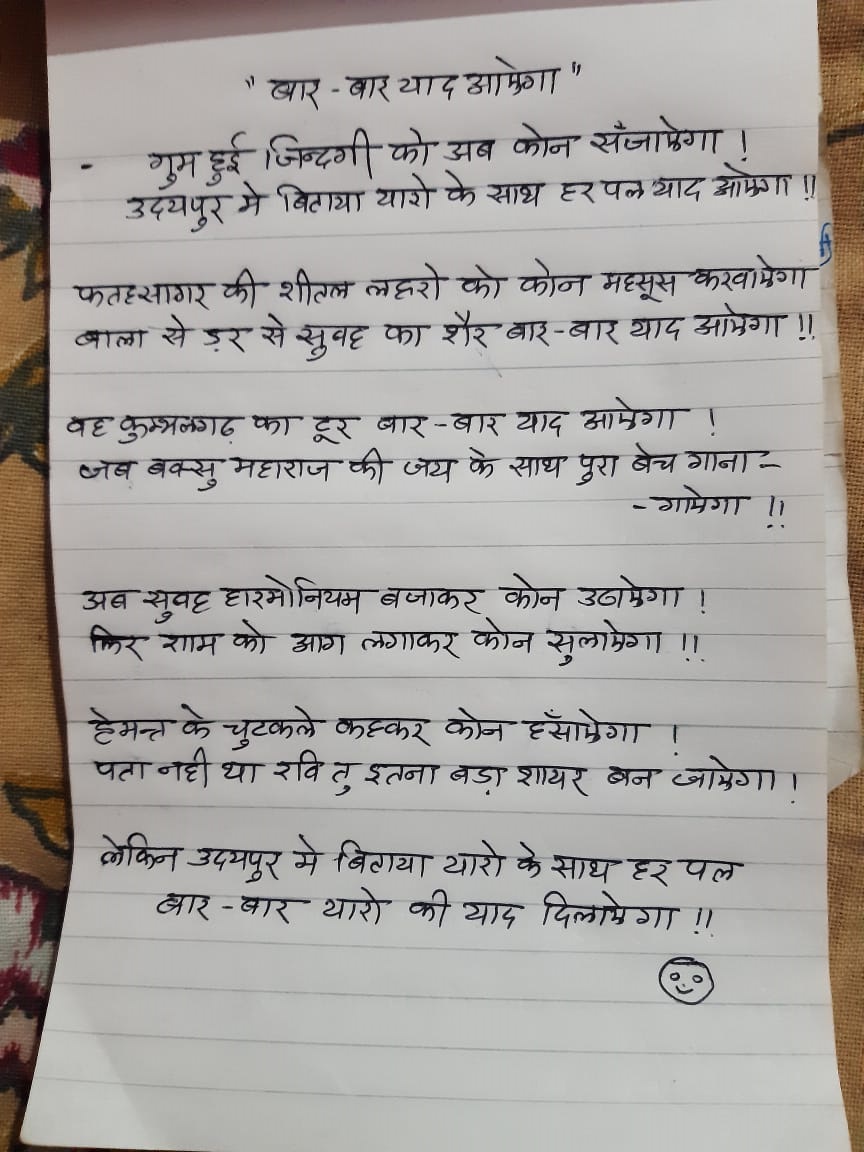 " बार - बार याद आयेगा "
- गुम हुई जिन्दगी को अब कोन सँजायेगा !
उदयपुर मे बिताया यारो के साथ हर पल याद आयेगा !!
फतहसागर की शीतल लहरो को कोन महसूस करवायेगा
बाला से ड़र से सुवह का शैर बार-बार याद आयेगा !!
वह कुम्भलगढ़ का टूर बार-बार याद आयेगा !
जब बक्सु महाराज की जय के साथ पुरा बेच गाना -
- गायेगा !!
अब सुवह हारमोनियम बजाकर कोन उठायेगा !
फिर शाम को आग लगाकर कोन सुलायेगा !!
हेमन्त के चुटकले कहकर कोन हँसायेगा !
पता नही था रवि तु इतना बड़ा शायर बन जायेगा !
लेकिन उदयपुर मे बिताया यारो के साथ हर पल
बार-बार यारो की याद दिलायेगा !!